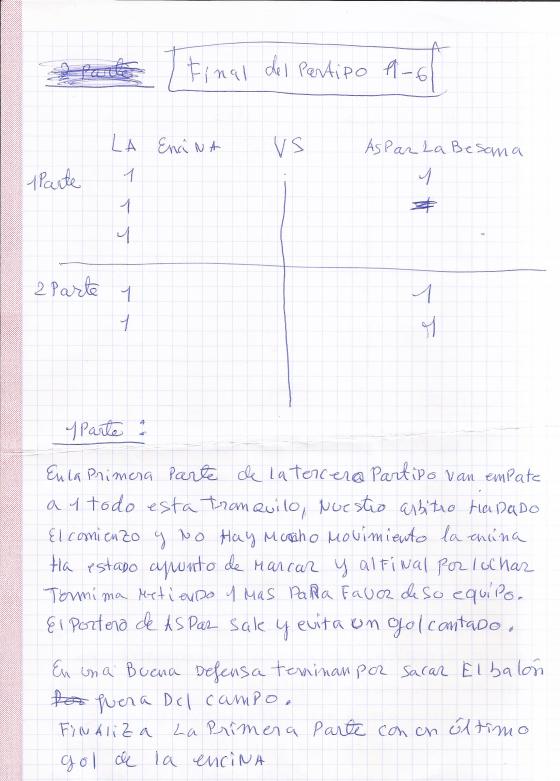 2 Parte Final del Partido 1-6
LA EnciNA VS ASPar La Besana
1 Parte 1 1
1 1
1
2 Parte 1 1
1 1
1 Parte :
En la Primera Parte de la tercera Partido van empate
a 1 todo esta tranquilo, Nuestro arbitro Ha Dado
El comienzo y No Hay Mucho Movimiento la encina
Ha estado apunto de Marcar y al final por luchar
Termima Metiendo 1 Mas PaRa Favor de so equipo.
El Portero de ASPar Sale y evita un gol cantado.
En una Buena Defensa terminan por sacar El balón
fuera Del campo.
FiNAliza La Primera Parte con un último
gol de la enciNA